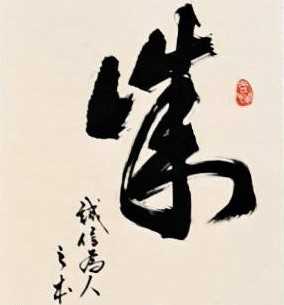 誠
誠信為人
之本